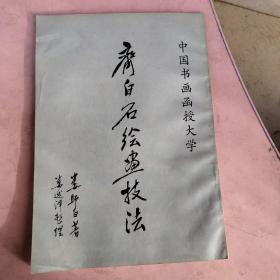 中国书画函授大学
齐白石绘画技法
娄师白著
娄述泽整理